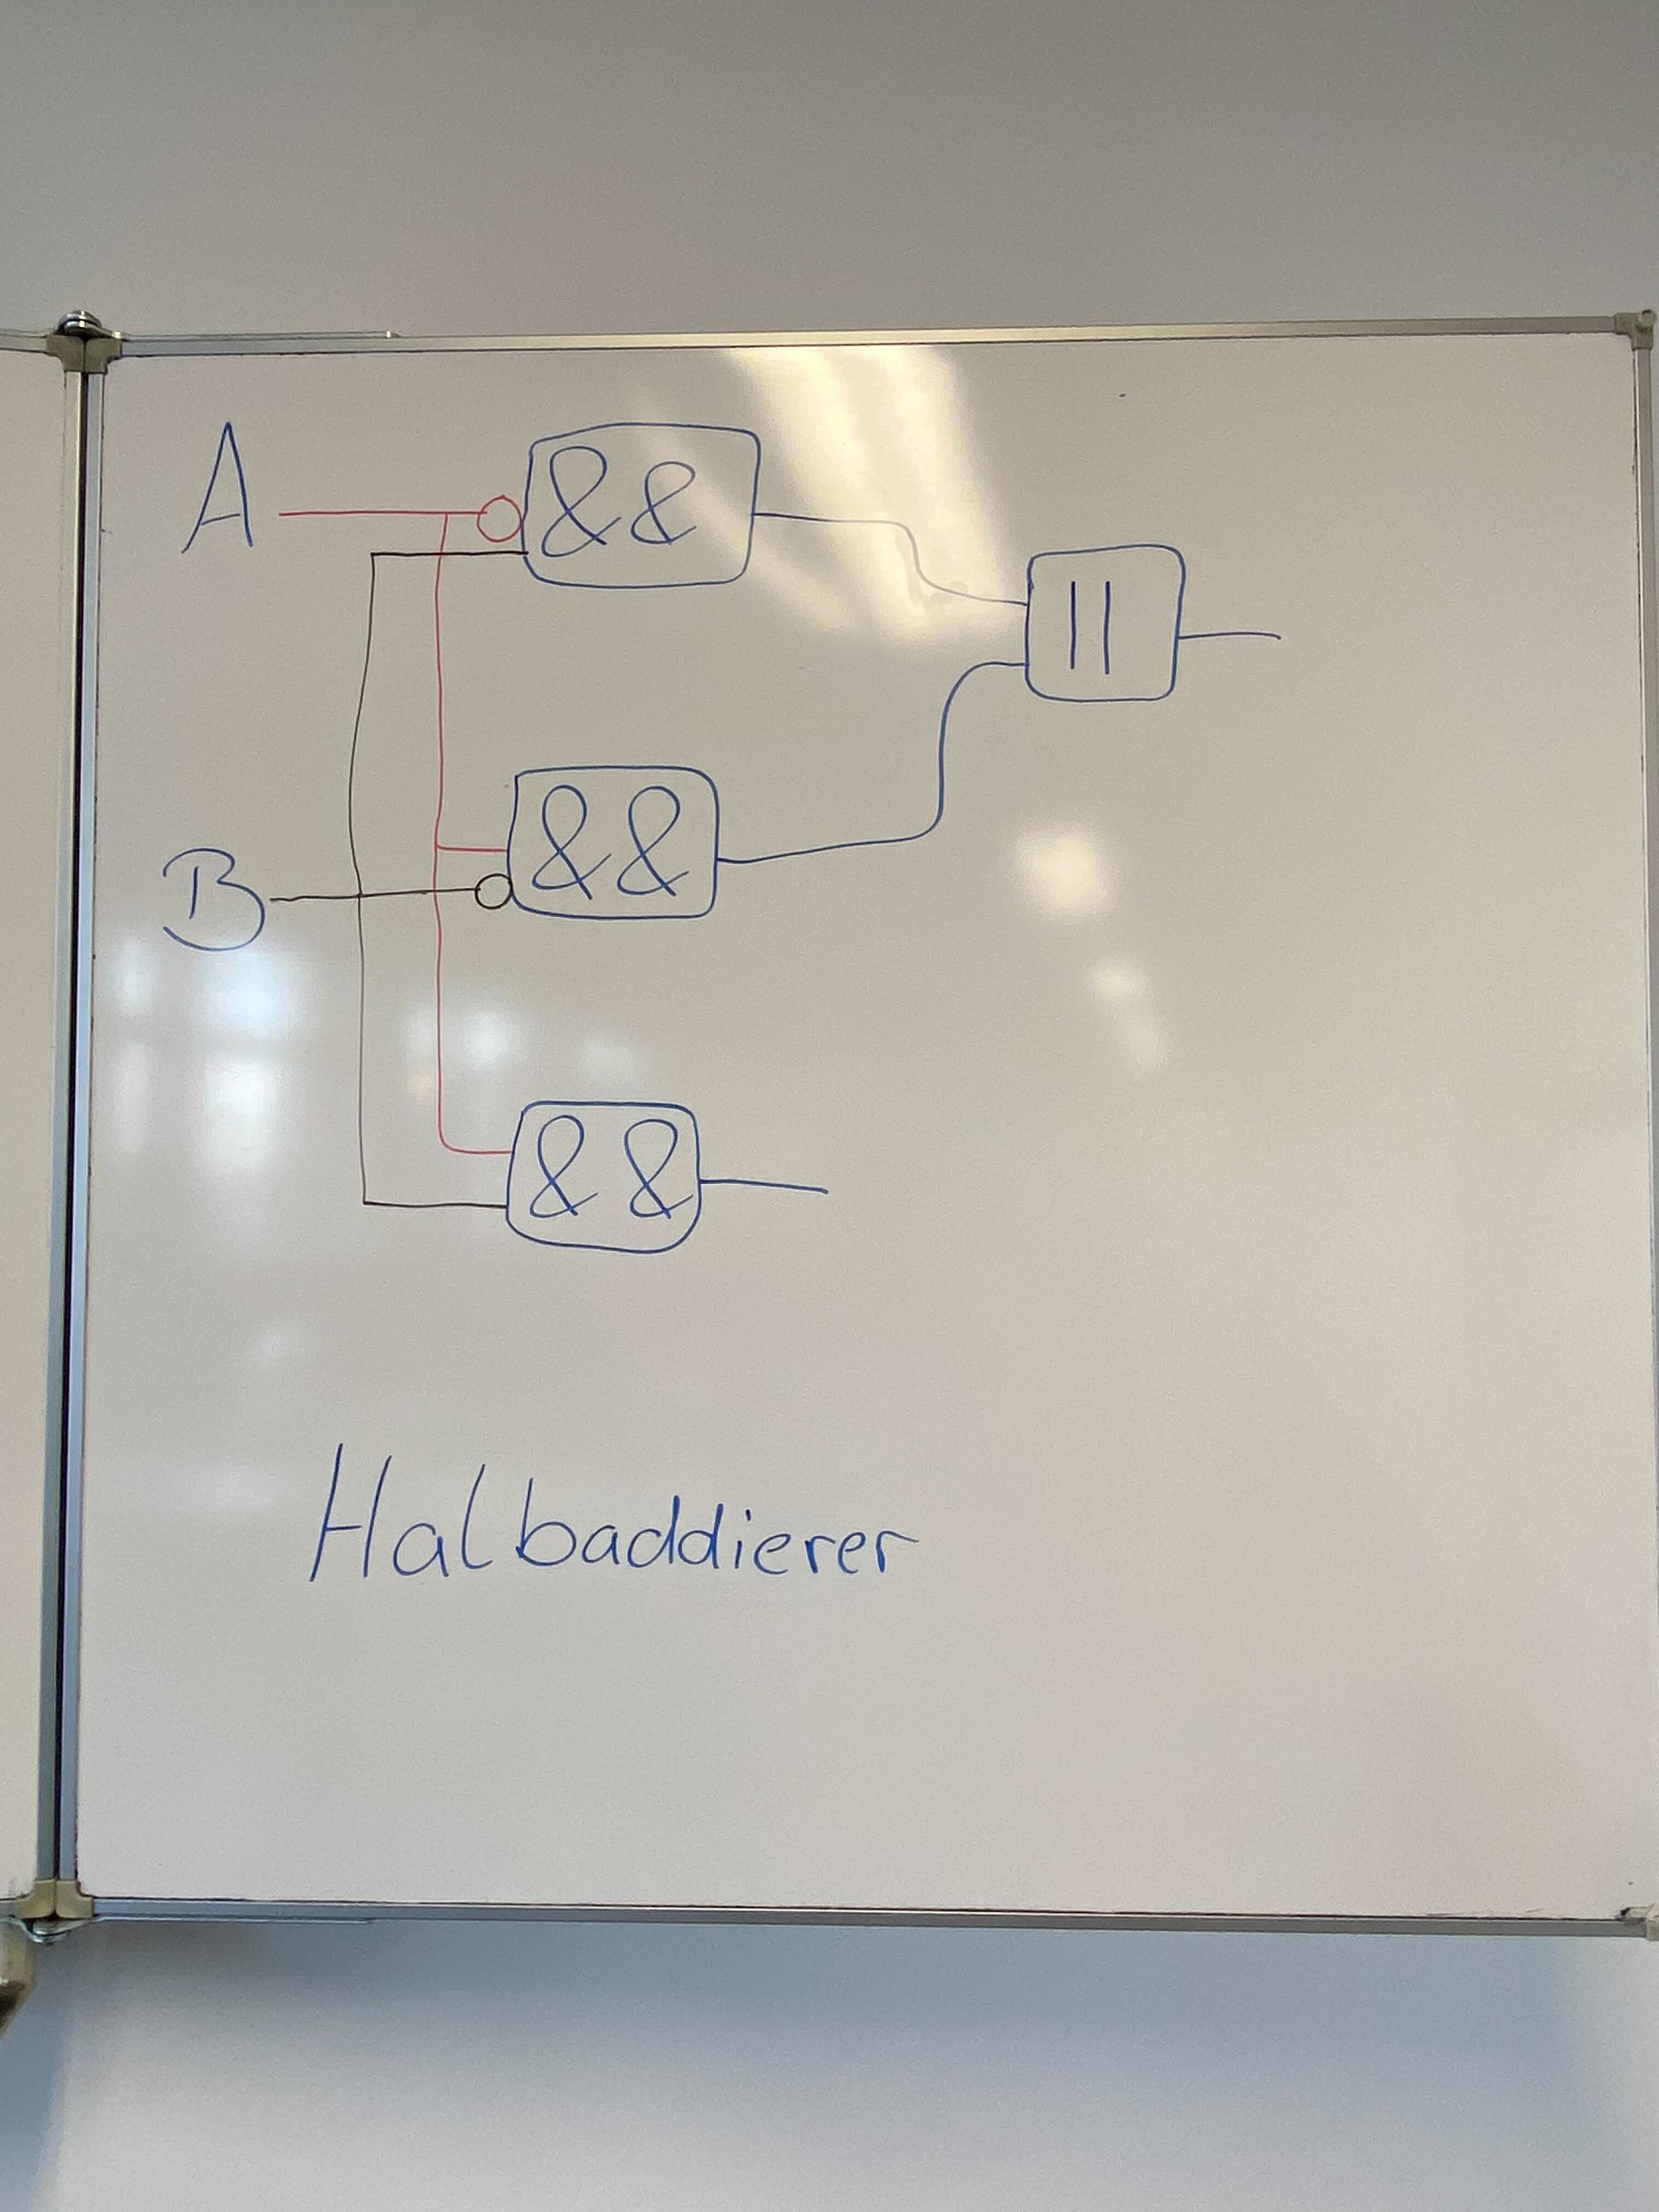 A
&&
||
&&
B
&&
Halbaddierer